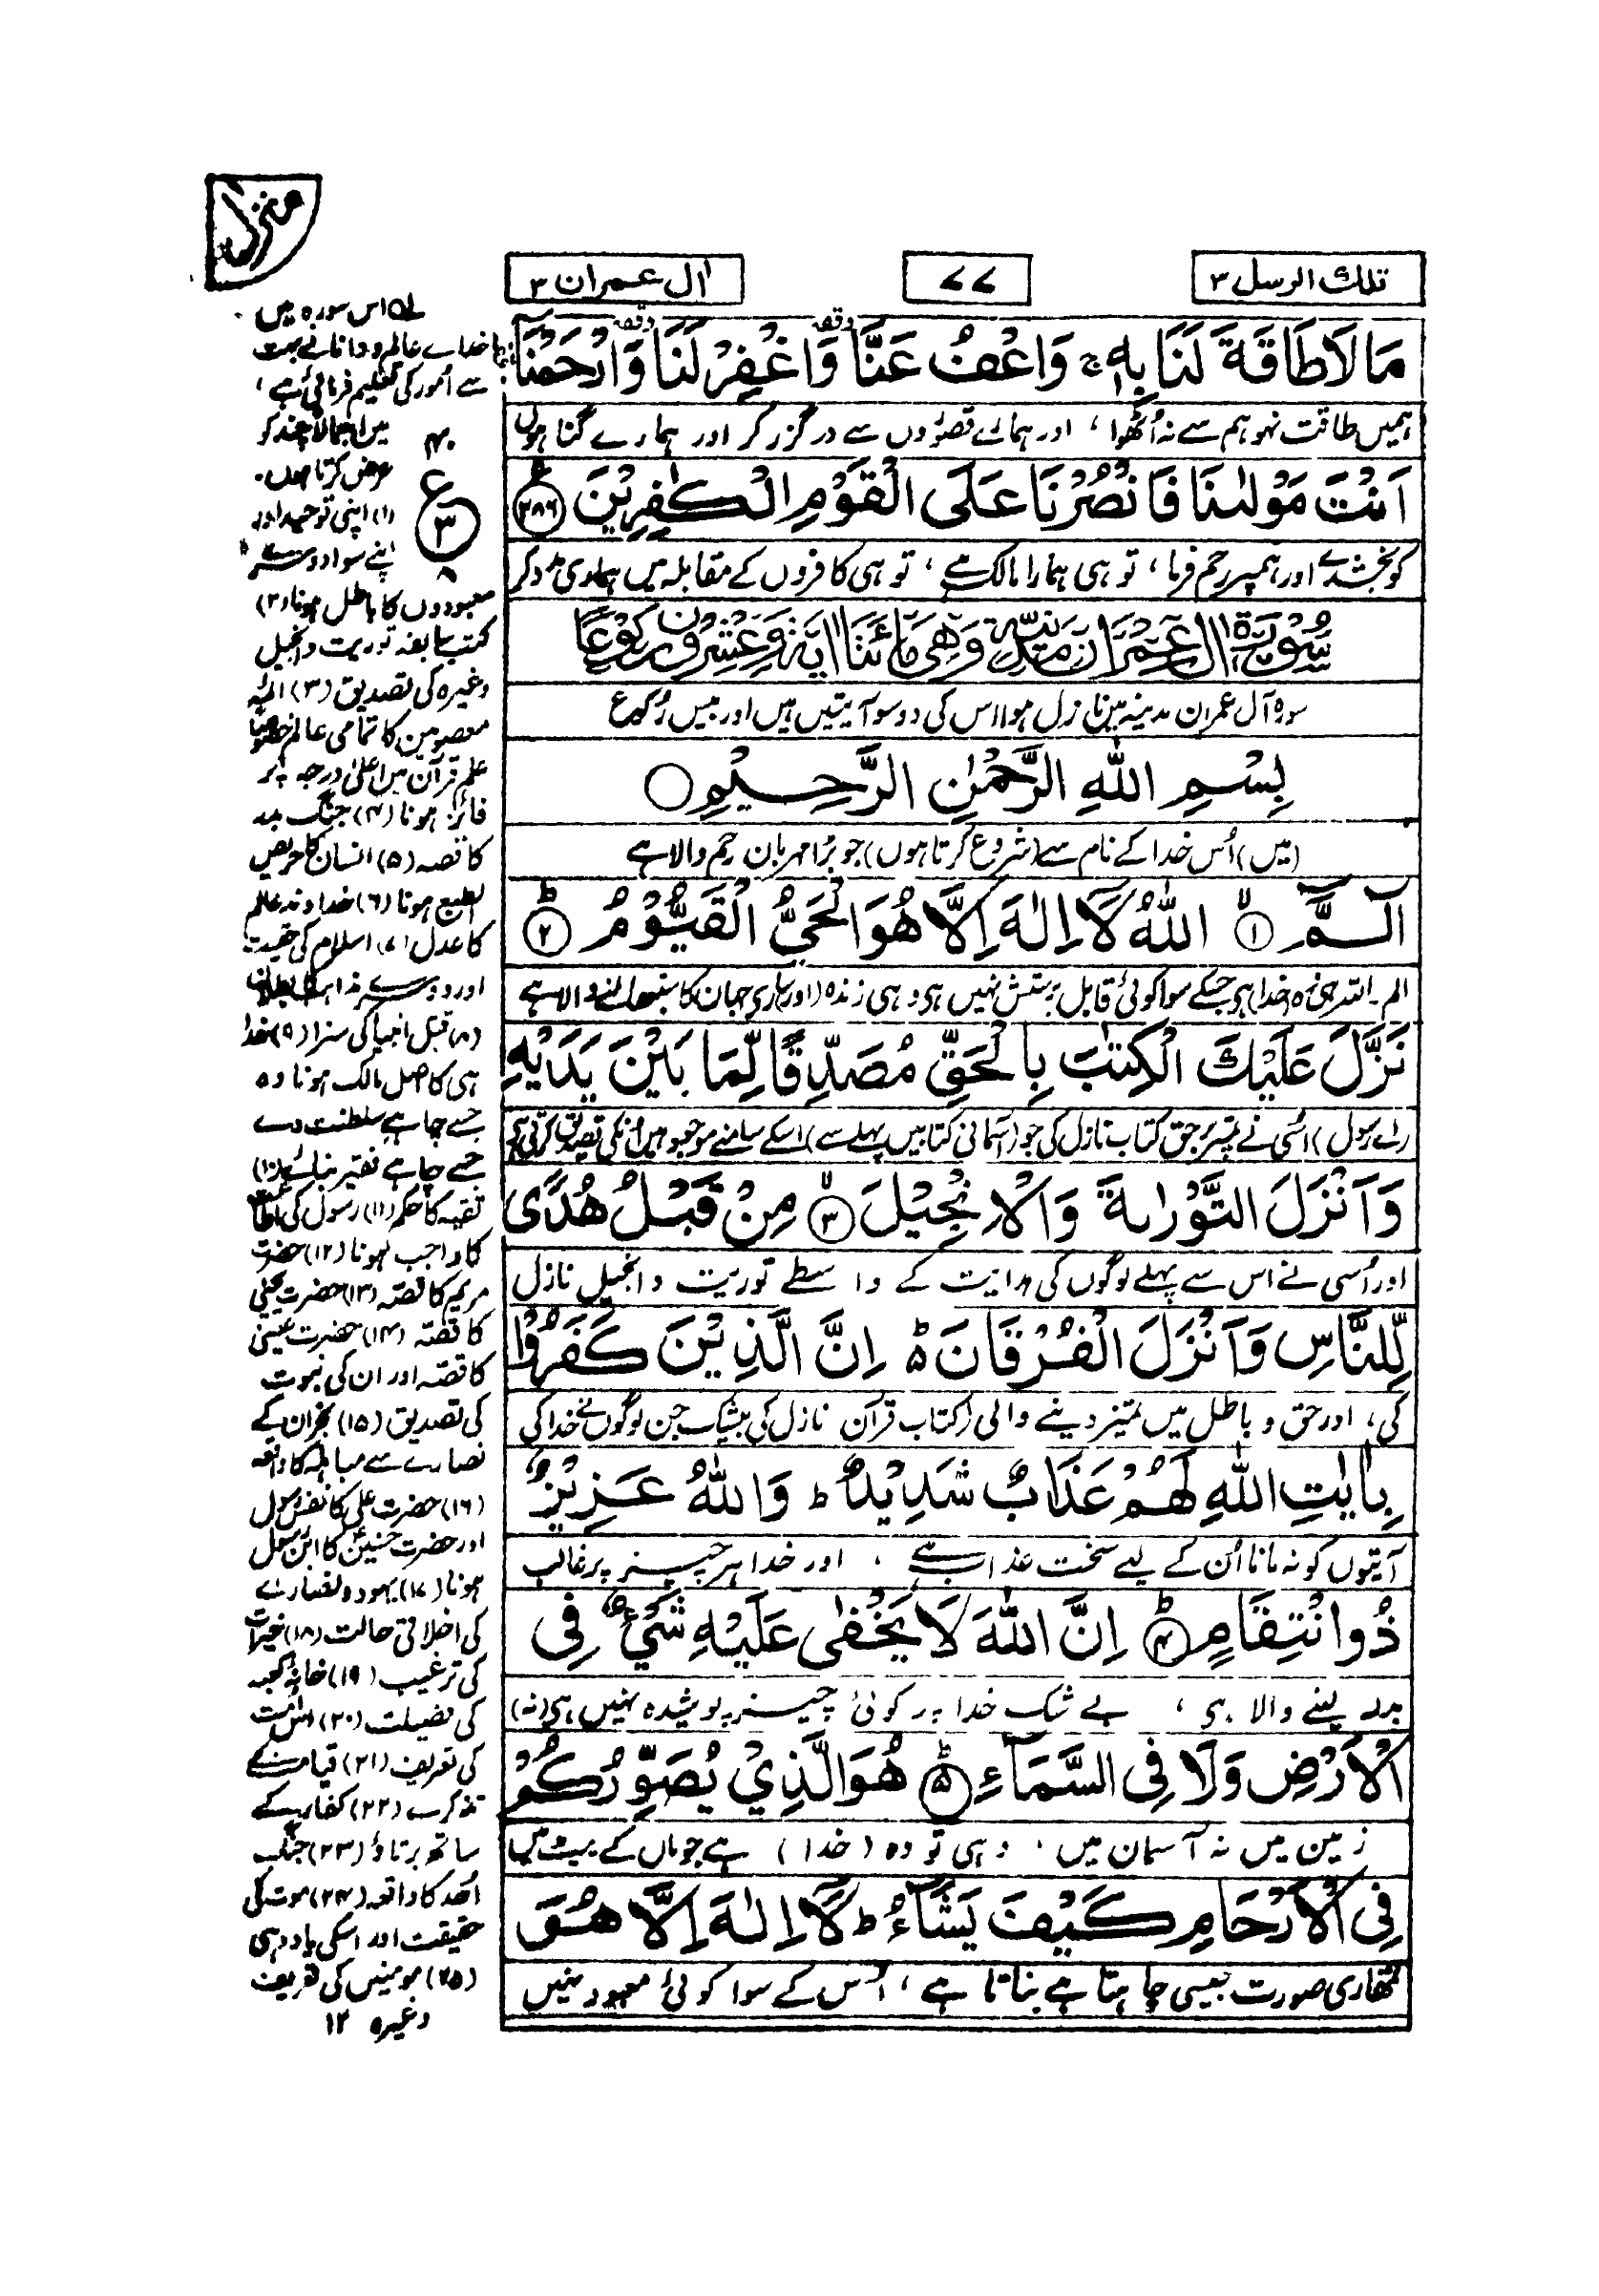 تلك الرسل ۳
۷۷
اٰل عمران ۳
مَا لَا طَاقَةَ لَنَا بِهٖ ج وَاعْفُ عَنَّا وَاغْفِرْ لَنَا وَارْحَمْنَا
ہمیں طاقت نہو ہم سے نہ اُٹھوا، اور ہمارے قصوروں سے درگزر کر اور ہمارے گناہوں
اَنْتَ مَوْلٰىنَا فَانْصُرْنَا عَلَى الْقَوْمِ الْكٰفِرِيْنَ ۲۸۶
کو بخشدے اور ہمپر رحم فرما، تو ہی ہمارا مالک ہے، تو ہی کافروں کے مقابلہ میں ہماری مدد کر
سُوْرَةُ اٰلِ عِمْرَانَ مَدَنِيَّةٌ وَهِيَ مِائَتَا اٰيَةٍ وَعِشْرُوْنَ رُكُوْعًا
سورہ آل عمران مدینہ میں نازل ہوا اس کی دو سو آیتیں ہیں اور بیس رکوع
بِسْمِ اللّٰهِ الرَّحْمٰنِ الرَّحِيْمِ
(میں) اُس خدا کے نام سے (شروع کرتا ہوں) جو بڑا مہربان رحم والا ہے
الٓمّٓ ۱ اللّٰهُ لَآ اِلٰهَ اِلَّا هُوَ الْحَيُّ الْقَيُّوْمُ ۲
الم ۔ اللہ ہی وہ (خدا) ہے جسکے سوا کوئی قابل پرستش نہیں ہے وہی زندہ (اور) سارے جہان کا سنبھالنے والا ہے
نَزَّلَ عَلَيْكَ الْكِتٰبَ بِالْحَقِّ مُصَدِّقًا لِّمَا بَيْنَ يَدَيْهِ
(اے رسول) اسی نے تمپر برحق کتاب نازل کی جو (آسمانی کتابیں پہلے سے) اسکے سامنے موجود ہیں انکی تصدیق کرتی ہے
وَاَنْزَلَ التَّوْرٰىةَ وَالْاِنْجِيْلَ ۳ مِنْ قَبْلُ هُدًى
اور اُسی نے اس سے پہلے لوگوں کی ہدایت کے واسطے توریت و انجیل نازل
لِّلنَّاسِ وَاَنْزَلَ الْفُرْقَانَ ط اِنَّ الَّذِيْنَ كَفَرُوْا
کی، اور حق و باطل میں تمیز دینے والی (کتاب قرآن) نازل کی بیشک جن لوگوں نے خدا کی
بِاٰيٰتِ اللّٰهِ لَهُمْ عَذَابٌ شَدِيْدٌ ط وَاللّٰهُ عَزِيْزٌ
آیتوں کو نہ مانا اُن کے لیے سخت عذاب ہے، اور خدا ہر چیز پر غالب
ذُوانْتِقَامٍ ۴ اِنَّ اللّٰهَ لَا يَخْفٰى عَلَيْهِ شَيْءٌ فِي
بدلہ لینے والا ہے، بے شک خدا پر کوئی چیز پوشیدہ نہیں ہے (نہ)
الْاَرْضِ وَلَا فِي السَّمَآءِ ۵ هُوَ الَّذِيْ يُصَوِّرُكُمْ
زمین میں نہ آسمان میں، وہی تو وہ (خدا) ہے جو ماں کے پیٹ میں
فِي الْاَرْحَامِ كَيْفَ يَشَآءُ ط لَآ اِلٰهَ اِلَّا هُوَ
تمھاری صورت جیسی چاہتا ہے بناتا ہے، اُس کے سوا کوئی معبود نہیں
منزل
اس سورہ میں
خداے عالم و دانا نے بہت
سے اُمور کی تعلیم فرمائی ہے،
میں اجمالاً چند کو
عرض کرتا ہوں۔
(۱) اپنی توحید اور
اپنے سوا دوسرے
۴۰
ع
۳
۸
معبودوں کا باطل ہونا (۲)
کتب سابقہ توریت و انجیل
وغیرہ کی تصدیق (۳) ائمہ
معصومین کا تمامی عالم خصوصاً
علم قرآن میں اعلیٰ درجہ پر
فائز ہونا (۴) جنگ بدر
کا قصہ (۵) انسان کا حریص
الطبع ہونا (۶) خداوند عالم
کا عدل (۷) اسلام کی حقیت
اور دوسرے مذاہب کا بطلان
(۸) قتل انبیا کی سزا (۹) خدا
ہی کا اصل مالک ہونا وہ
جسے چاہے سلطنت دے
جسے چاہے فقیر بنائے (۱۰)
تقیہ کا حکم (۱۱) رسول کی اطاعت
کا واجب ہونا (۱۲) حضرت
مریم کا قصّہ (۱۳) حضرت یحییٰ
کا قصّہ (۱۴) حضرت عیسیٰ
کا قصّہ اور ان کی نبوت
کی تصدیق (۱۵) نجران کے
نصارے سے مباہلہ کا واقعہ
(۱۶) حضرت علی کا نفس رسول
اور حضرت حسنین کا ابن رسول
ہونا (۱۷) یہود و نصارے
کی اخلاقی حالت (۱۸) خیرات
کی ترغیب (۱۹) خانۂ کعبہ
کی فضیلت (۲۰) اس امت
کی تعریف (۲۱) قیامت کے
تذکرے (۲۲) کفار کے
ساتھ برتاؤ (۲۳) جنگ
اُحد کا واقعہ (۲۴) موت کی
حقیقت اور اسکی یاددہی
(۲۵) مومنین کی تعریف
وغیرہ ۱۲